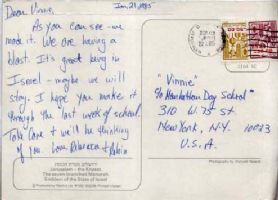 Jan. 21, 1985
Dear Vinnie,
As you can see - we
made it. We are having a
blast. It's great being in
Israel - maybe we will
stay. I hope you make it
through the last week of school.
Take care + we'll be thinking
of you. Love Rebecca + Robin
ירושלים
Jerusalem - the Knesset
The seven branched Menorah
Emblem of the State of Israel
"Vinnie"
c/o Manhattan Day School
310 W. 75 St
New York, N.Y. 10023
U.S.A.
Photography by